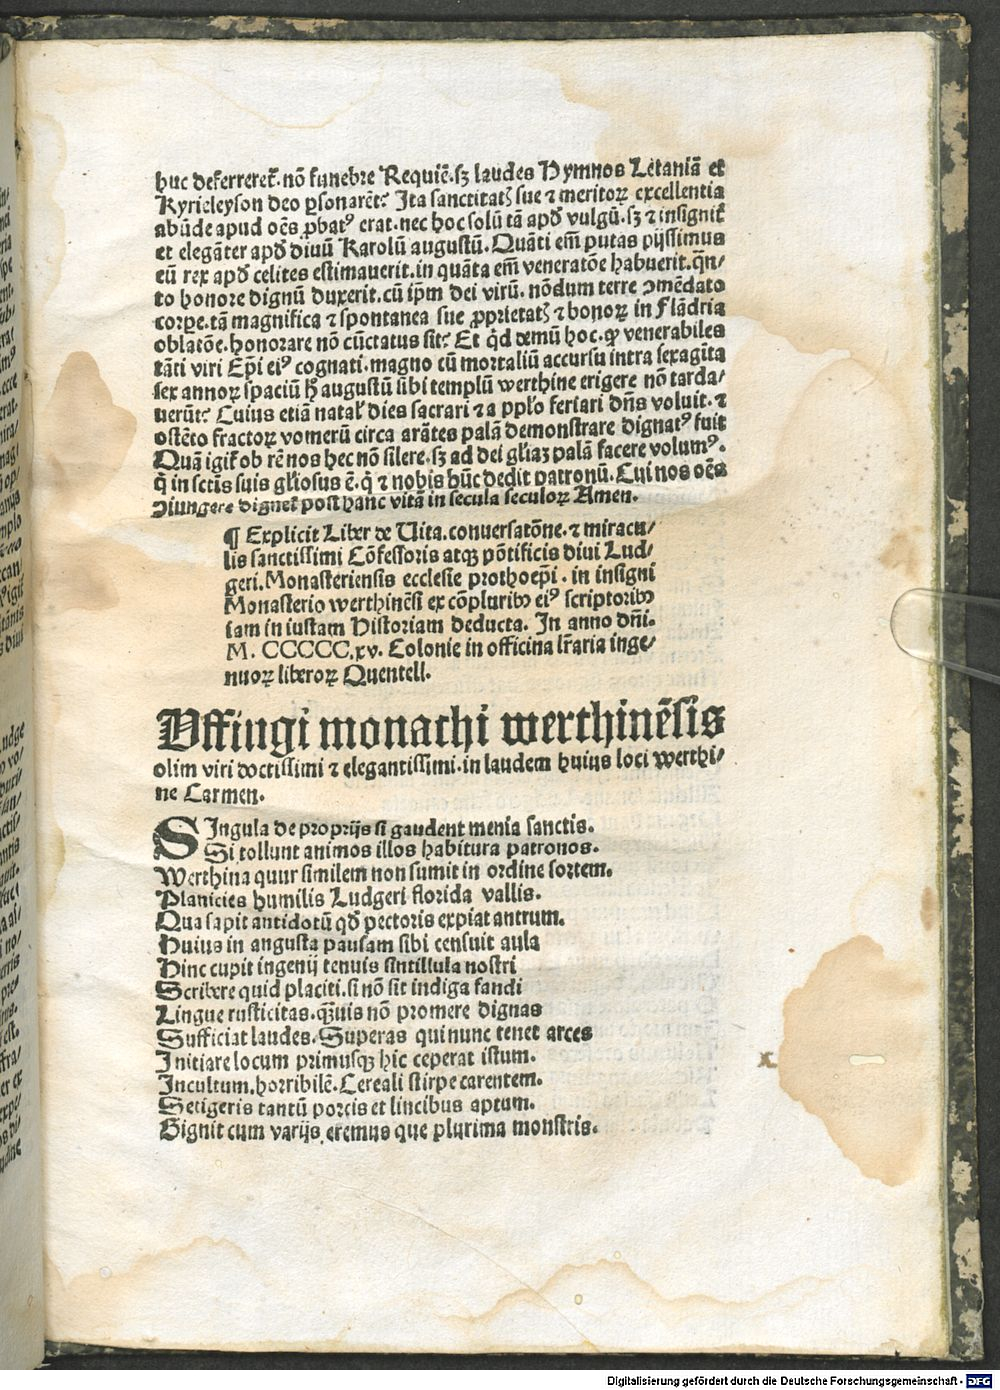 huc deferreret᷑. nō funebre Requiē. sꝫ laudes Hymnos Letaniā et
Kyrieleyson deo ꝑsonarēt? Ita sanctitatꝭ sue ⁊ meritoꝝ excellentia
abūde apud oēs ꝓbatꝰ erat. nec hoc solū tā apđ vulgū. sꝫ ⁊ insignit᷑
et elegāter apđ divū Karolū augustū. Quāti em̄ putas pijssimus
eū rex apđ celites estimauerit. in quāta em̄ veneratōe habuerit. q̄n⸗
to honore dignū duxerit. cū ip̄m dei virū. nōdum terre ꝯmēdato
corꝑe. tā magnifica ⁊ spontanea sue ꝓprietatꝭ ⁊ bonoꝝ in Flādria
oblatōe. honorare nō cūctatus sit? Et qͥd demū hoc. ꝙ venerabiles
tāti viri Ep̄i eiꝰ cognati. magno cū mortaliū accursu intra sexagīta
sex annoꝝ spaciū ħ augustū sibi templū werthine erigere nō tarda⸗
uerūt? Cuius etiā natal᷑ dies sacrari ⁊ a pplo feriari dn̄s voluit. ⁊
ostēto fractoꝝ vomerū circa arātes palā demonstrare dignatꝰ fuit
Quā igit᷑ ob rē nos hec nō silere. sꝫ ad dei gliaꝫ palā facere volumꝰ.
q̄ in sctīs suis gliosus ē. q̄ ⁊ nobis hūc dedit patronū. Cui nos oēs
ꝯiungere dignet᷑ post hanc vitā in secula seculoꝝ Amen.
¶ Explicit Liber de Uita. conuersatōne. ⁊ miracu⸗
lis sanctissimi Cōfessoris atqꝫ pōtificis diui Lud⸗
geri. Monasteriensis ecclesie prothoep̄i. in insigni
Monasterio werthinēsi ex cōpluribꝰ eiꝰ scriptoribꝰ
iam in iustam Historiam deducta. In anno dn̄i.
M. CCCCC.xv. Colonie in officina lr̄aria inge⸗
nuoꝝ liberoꝝ Quentell.
Uffingi monachi werthinēsis
olim viri doctissimi ⁊ elegantissimi. in laudem huius loci werthi⸗
ne Carmen.
SIngula de proprijs si gaudent menia sanctis.
Si tollunt animos illos habitura patronos.
Werthina quur similem non sumit in ordine sortem.
Planicies humilis Ludgeri florida vallis.
Qua sapit antidotū qđ pectoris expiat antrum.
Huius in angusta pausam sibi censuit aula
Hinc cupit ingenij tenuis sintillula nostri
Scribere quid placiti. si nō sit indiga fandi
Lingue rusticitas. qꝫuis nō promere dignas
Sufficiat laudes. Superas qui nunc tenet arces
Initiare locum primusqꝫ hic ceperat istum.
Incultum, horribilē. Cereali stirpe carentem.
Setigeris tantū porcis et lincibus aptum.
Gignit cum varijs eremus que plurima monstris.
Digitalisierung gefördert durch die Deutsche Forschungsgemeinschaft - DFG